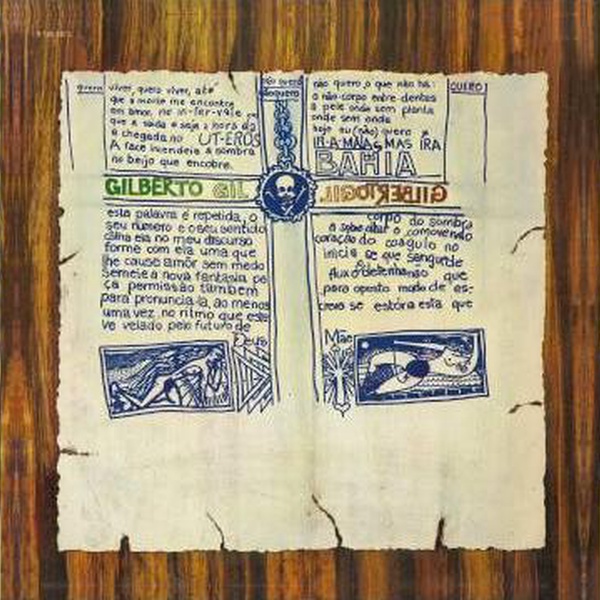 quero
viver, quero viver, até
que a morte me encontre
em amor, no in-fer-vale
que a saída e seja a hora da
a chegada no UT-EROS
A face incendeia a sombra
no beijo que encobre.
não quero
quero
não quero o que não há:
o não-corpo entre-dentes
a pele onde sem planta
onde sem onda
hoje eu (não) quero
IR A MAIAS, MAS IRA
BAHIA
QUERO
GILBERTO GIL
GILBERTO GIL
esta palavra é repetida, o
seu número e o seu sentido
calha ela no meu discurso
forme com ela uma que
lhe cause amor sem medo
Semeie a nova fantasia pe
ça permissão também
para pronuncia-la, ao menos
uma vez, no ritmo que este
ve velado pelo futuro de
Deus
corpo da sombra
a sobre altar o comovendo
coração do coagulo no
inicia se que sangue de
fluxo detenha não que
para oposto modo de es-
creva se estória esta que
Mão